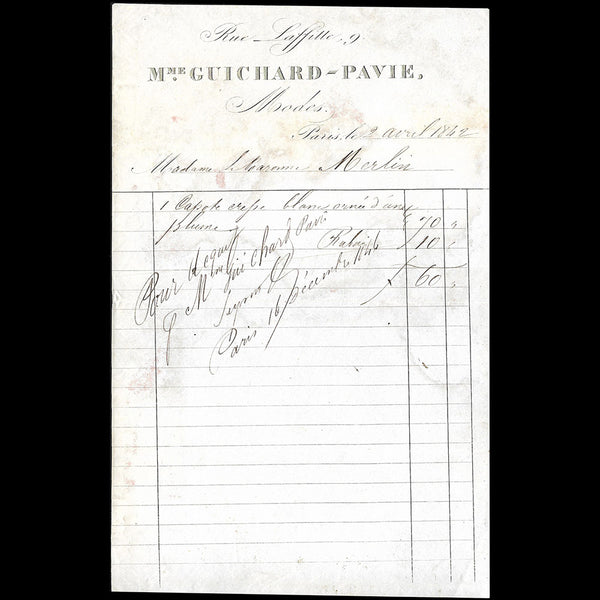 Rue Laffitte, 9.
MME. GUICHARD-PAVIE,
Modes.
Paris, le 2 avril 1842
Madame la Baronne Merlin
1 Capote crêpe blanc orné d'une
plume 70 "
Rabais 10 "
f 60 "
Pour acquit
Mme Guichard Pavie
Paris 16 Décembre 1846